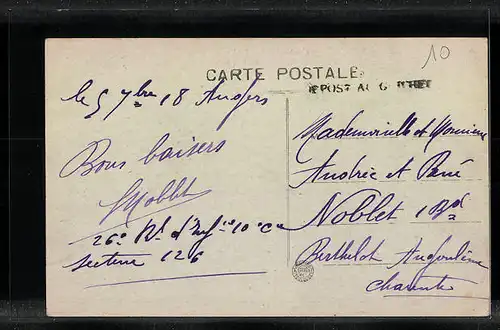 10
CARTE POSTALE
le 5 7bre 18 Angers
Bons baisers
Noblet
26e d'Inf ie 10e Cie
Secteur 126
Mademoiselle et Monsieur
Andrée et René
Noblet 1 Bd
Berthelot Angoulême
Charente